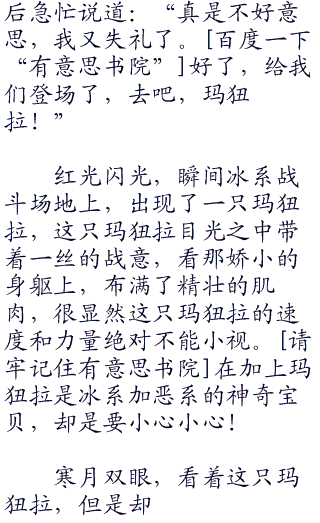 后急忙说道：“真是不好意
思，我又失礼了。[百度一下
“有意思书院”]好了，给我
们登场了，去吧，玛狃
拉！”
红光闪光，瞬间冰系战
斗场地上，出现了一只玛狃
拉，这只玛狃拉目光之中带
着一丝的战意，看那娇小的
身躯上，布满了精壮的肌
肉，很显然这只玛狃拉的速
度和力量绝对不能小视。[请
牢记住有意思书院]在加上玛
狃拉是冰系加恶系的神奇宝
贝，却是要小心小心！
寒月双眼，看着这只玛
狃拉，但是却